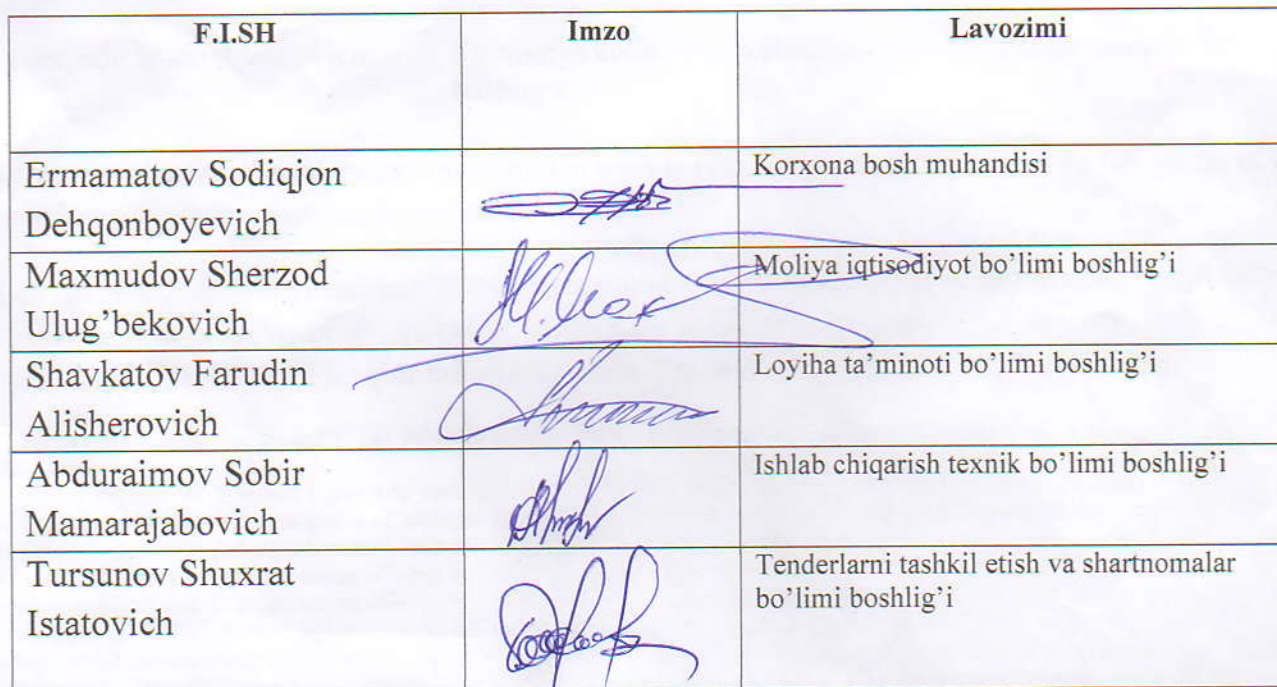 F.I.SH
Imzo
Lavozimi
Ermamatov Sodiqjon
Dehqonboyevich
Korxona bosh muhandisi
Maxmudov Sherzod
Ulug’bekovich
Moliya iqtisodiyot bo’limi boshlig’i
Shavkatov Farudin
Alisherovich
Loyiha ta’minoti bo’limi boshlig’i
Abduraimov Sobir
Mamarajabovich
Ishlab chiqarish texnik bo’limi boshlig’i
Tursunov Shuxrat
Istatovich
Tenderlarni tashkil etish va shartnomalar
bo’limi boshlig’i